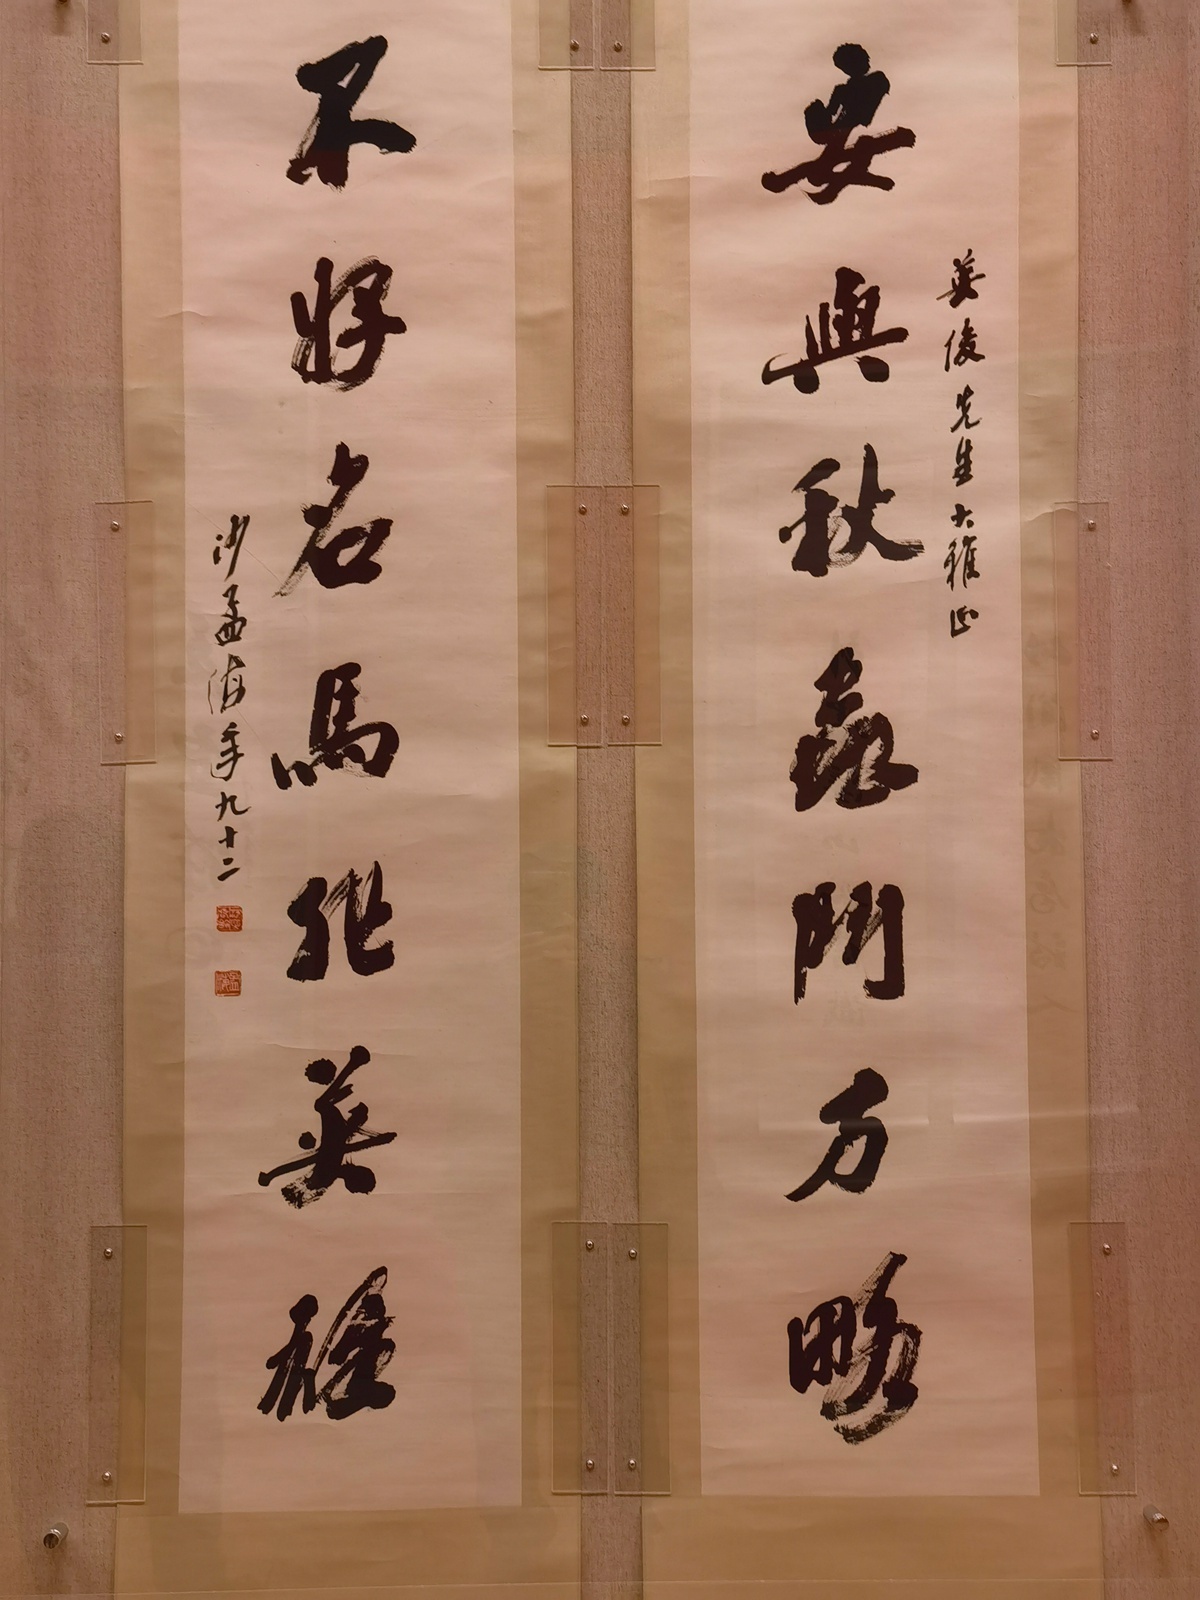 英俊先生大雅正
要與秋蟲鬥万略
不將名馬非英雄
沙孟海年九十二